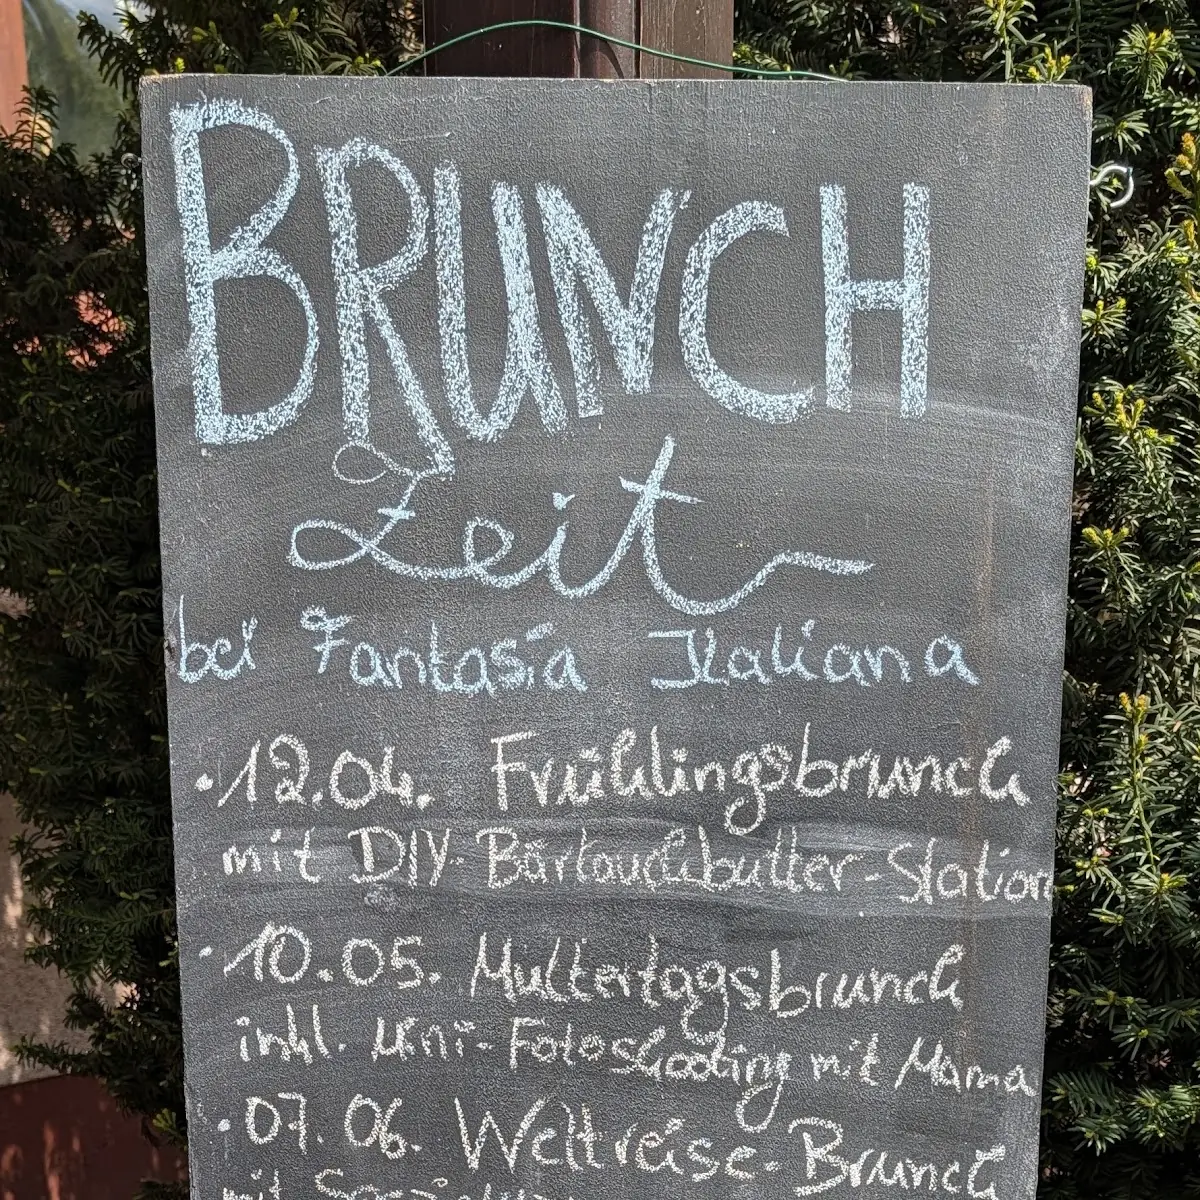 BRUNCH
Zeit
bei Fantasia Italiana
• 12.04. Frühlingsbrunch
mit DIY-Bärlauchbutter-Station
• 10.05. Muttertagsbrunch
inkl. Mini-Fotoshooting mit Mama
• 07.06. Weltreise-Brunch
mit